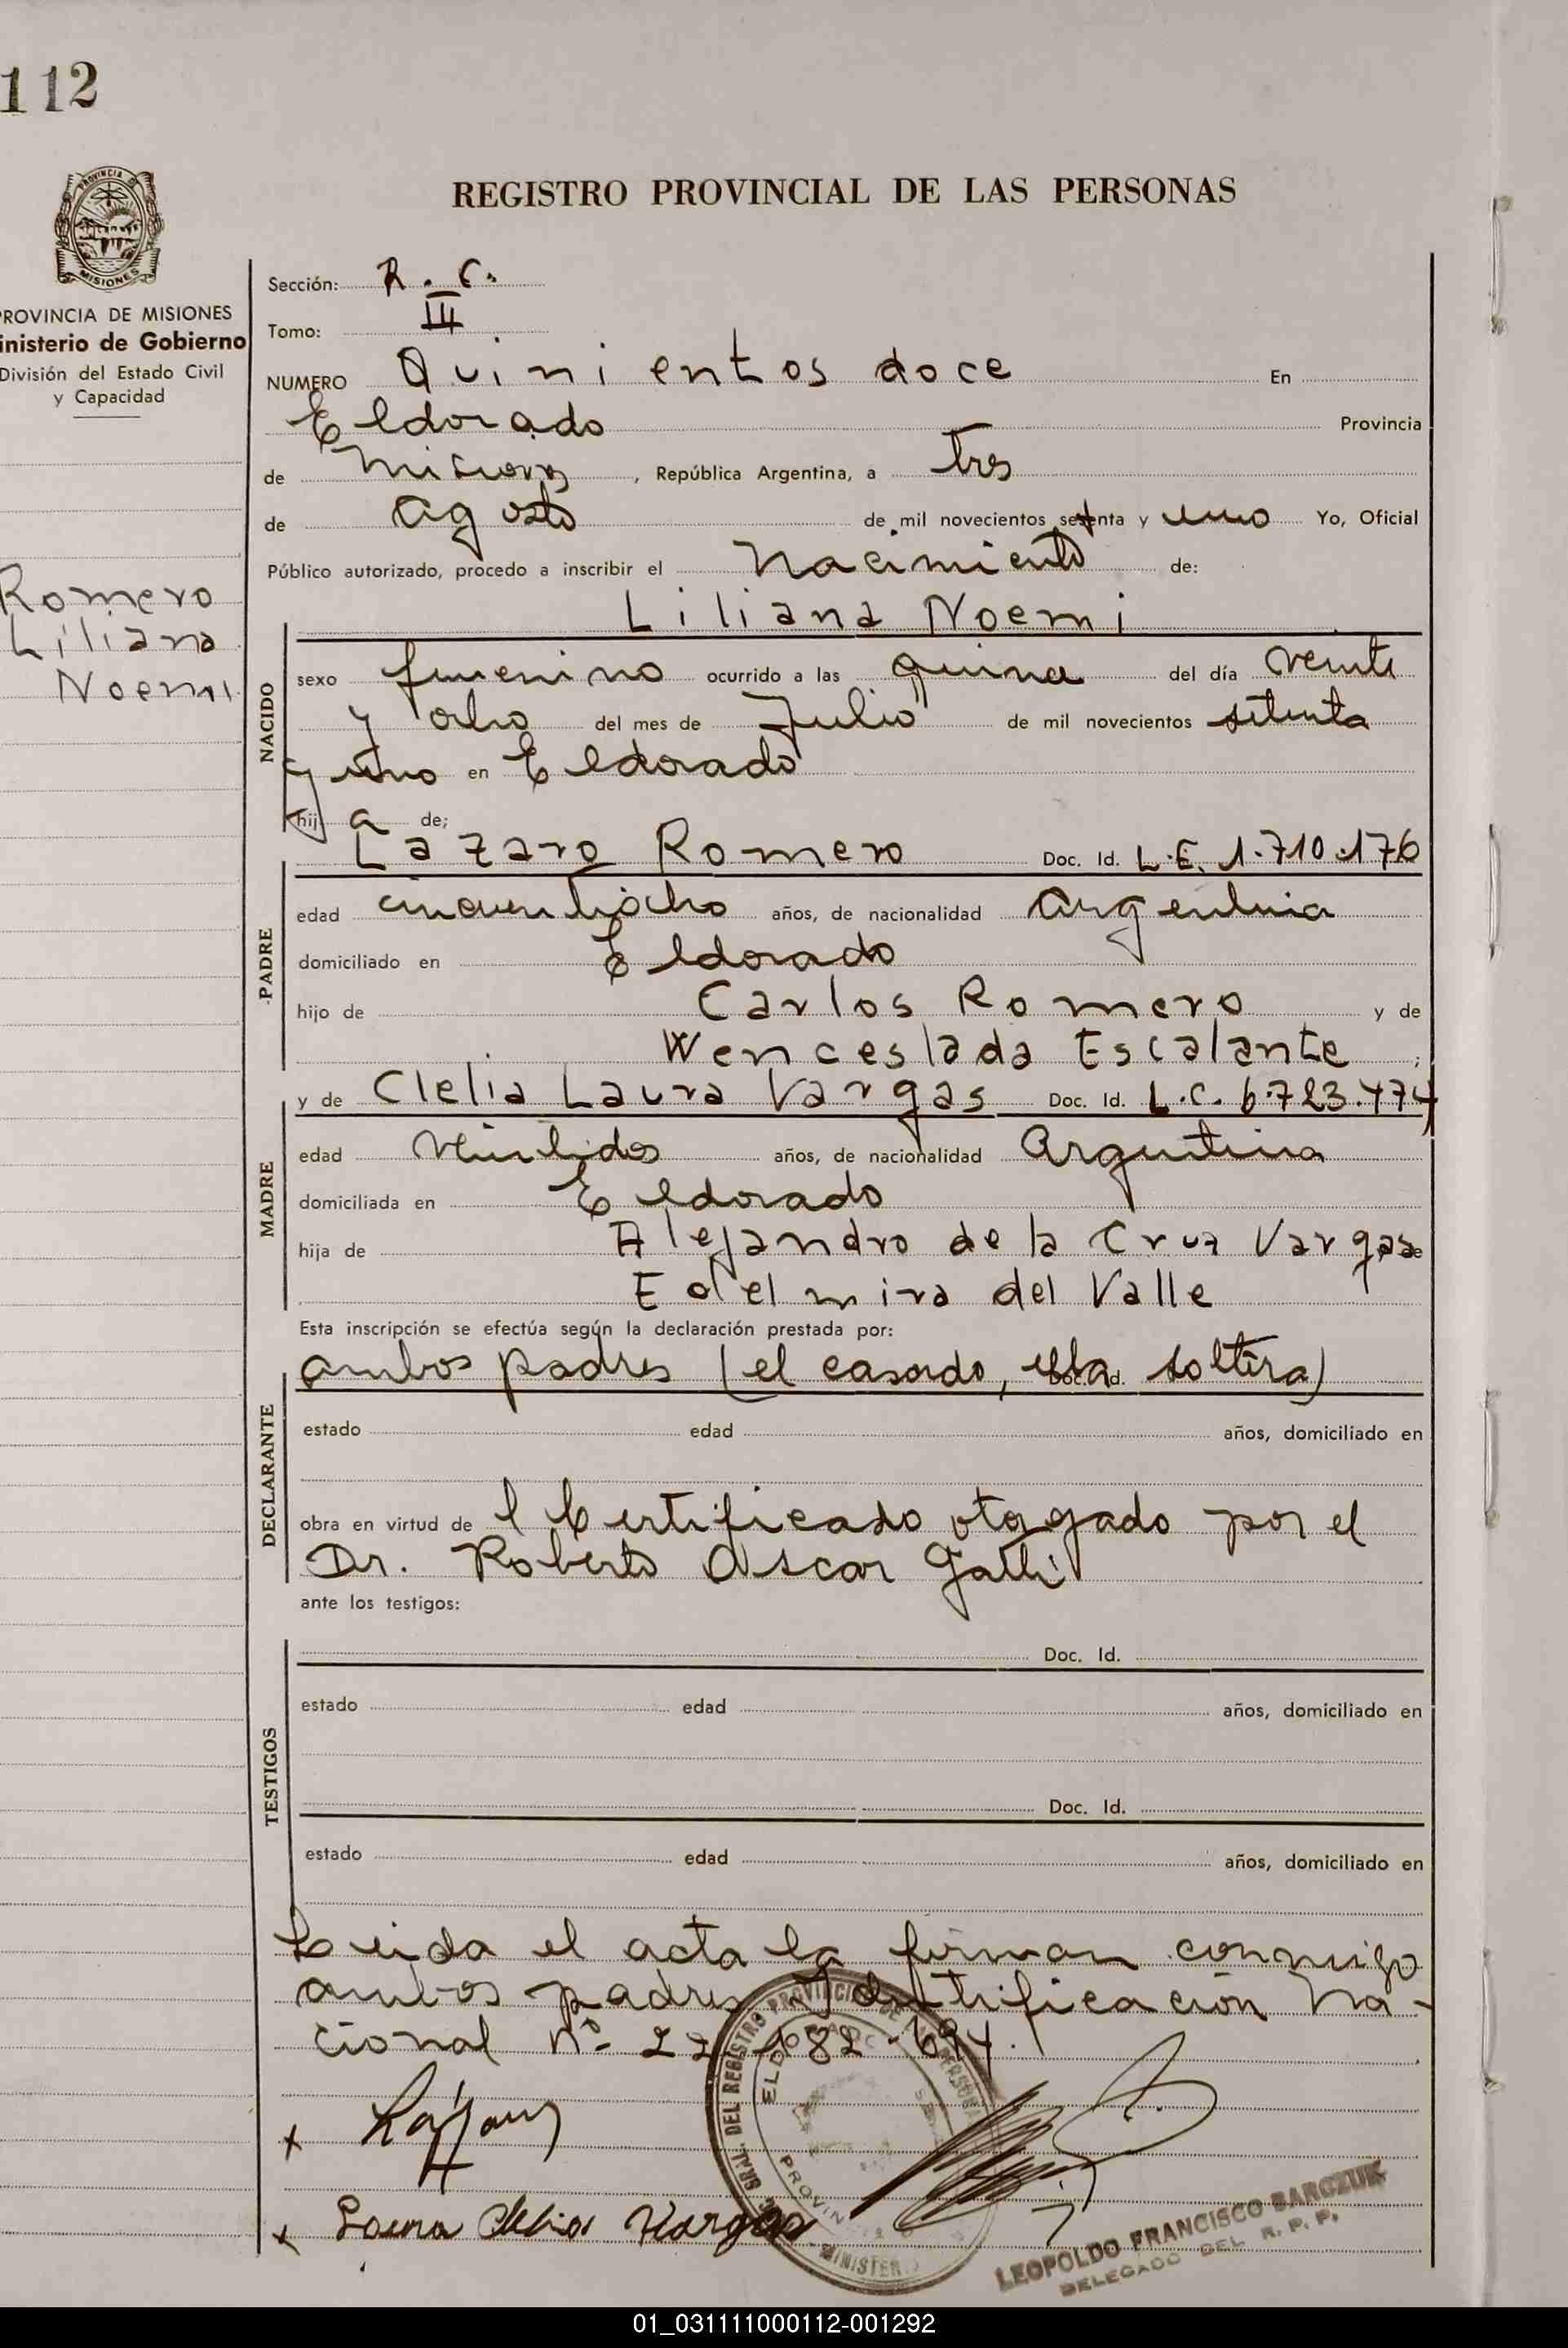 112
REGISTRO PROVINCIAL DE LAS PERSONAS
PROVINCIA
MISIONES
PROVINCIA DE MISIONES
inisterio de Gobierno
División del Estado Civil
y Capacidad
Romero
Liliana
Noemi
Sección: R. C.
Tomo: III
NUMERO Quinientos doce En
Eldorado Provincia
de Misiones, República Argentina, a tres
de agosto de mil novecientos setenta y uno Yo, Oficial
Público autorizado, procedo a inscribir el nacimiento de:
Liliana Noemi
NACIDO
sexo femenino ocurrido a las quince del día veinte
y ocho del mes de Julio de mil novecientos setenta
y uno en Eldorado
hij a de;
Lazaro Romero Doc. Id. L.E. 1.710.176
PADRE
edad cincuentiocho años, de nacionalidad Argentina
domiciliado en Eldorado
hijo de Carlos Romero y de
Wenceslada Escalante ;
y de Clelia Laura Vargas Doc. Id. L.C. 6.723.474
MADRE
edad veintidos años, de nacionalidad Argentina
domiciliada en Eldorado
hija de Alejandro de la Cruz Vargas de
Edelmira del Valle
Esta inscripción se efectúa según la declaración prestada por:
ambos padres (el casado, ella soltera) Doc. Id.
DECLARANTE
estado edad años, domiciliado en
obra en virtud de l Certificado otorgado por el
Dr. Roberto Oscar Gatti
ante los testigos:
TESTIGOS
Doc. Id.
estado edad años, domiciliado en
Doc. Id.
estado edad años, domiciliado en
Leida el acta la firman conmigo
ambos padres Identificación Na-
cional Nº 22.182.694.
x
x Laura Clelia Vargas
GRAL. DEL REGISTRO PROVINCIAL DE LAS PERSONAS
MINISTER
LEOPOLDO FRANCISCO BARCZUK
DELEGADO DEL R. P. P.
01_031111000112-001292